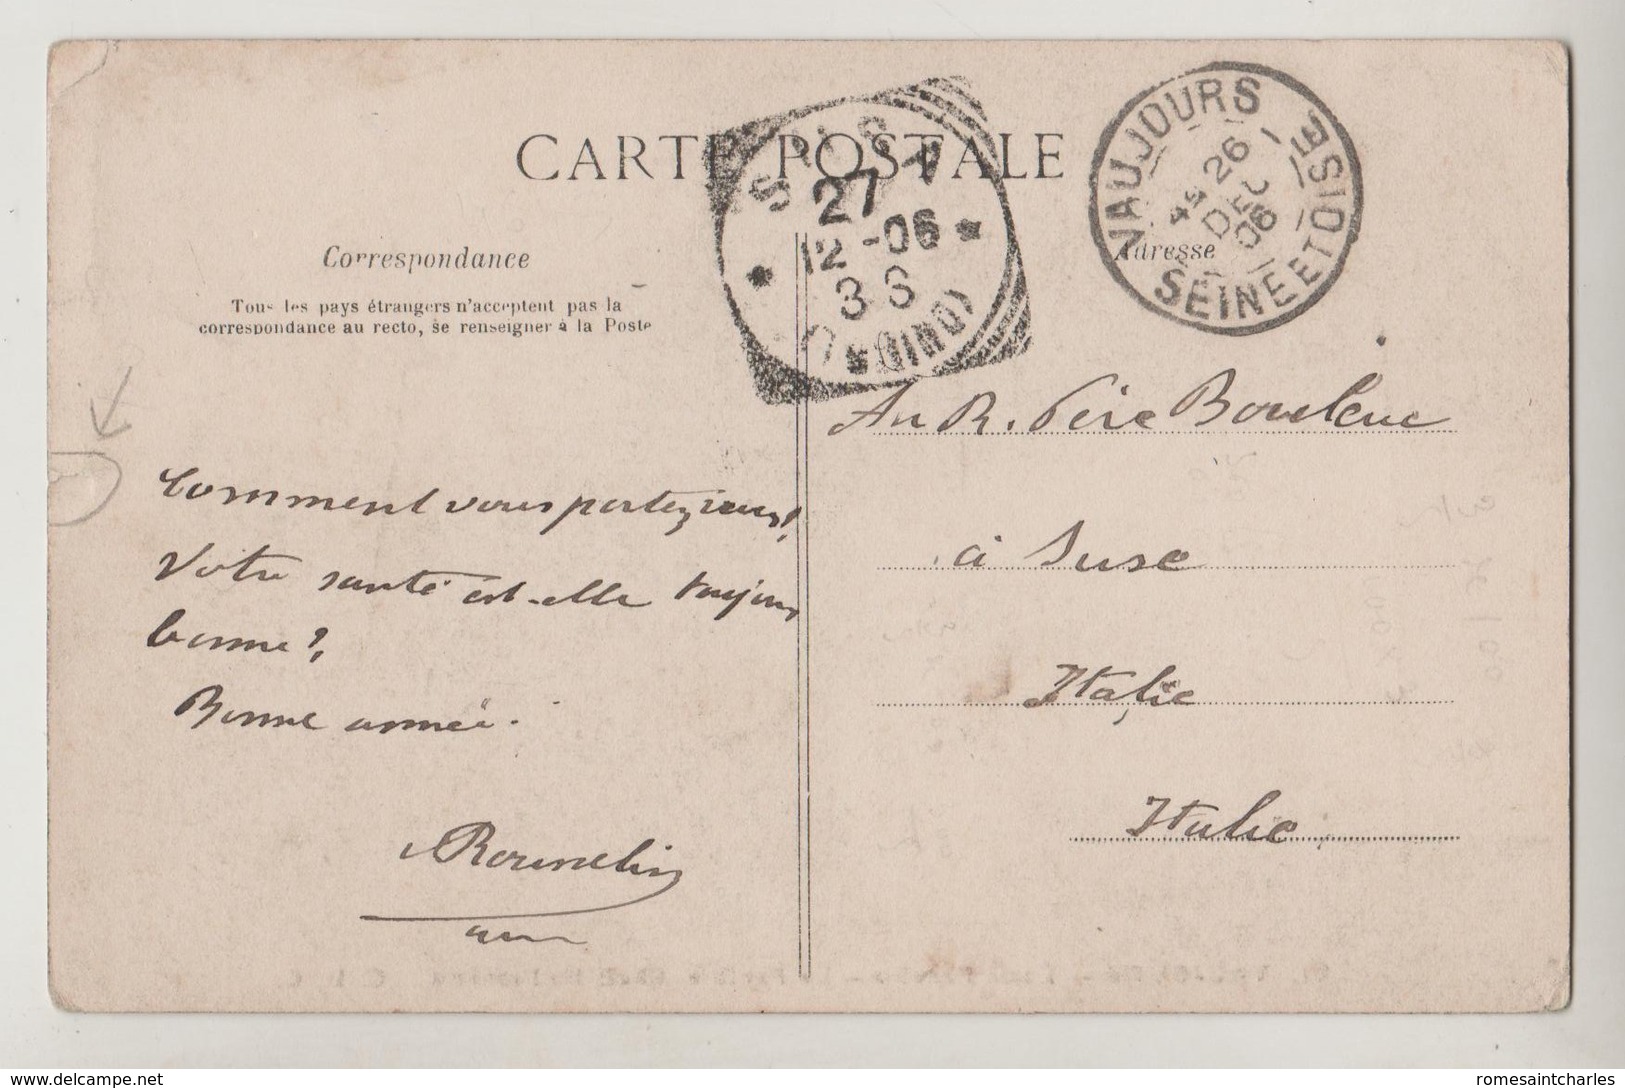 CARTE POSTALE
Correspondance
Tous les pays étrangers n'acceptent pas la
correspondance au recto, se renseigner à la Poste
Adresse
SUSA
27
12-06
3 S
(TORINO)
VAUJOURS
4E 26 1
DEC
06
SEINE ET OISE
Au R. Père Bouleuc
à Suse
Italie
Italie
Comment vous portez vous?
Votre santé est-elle toujours
bonne?
Bonne année.
delcampe.net
romesaintcharles